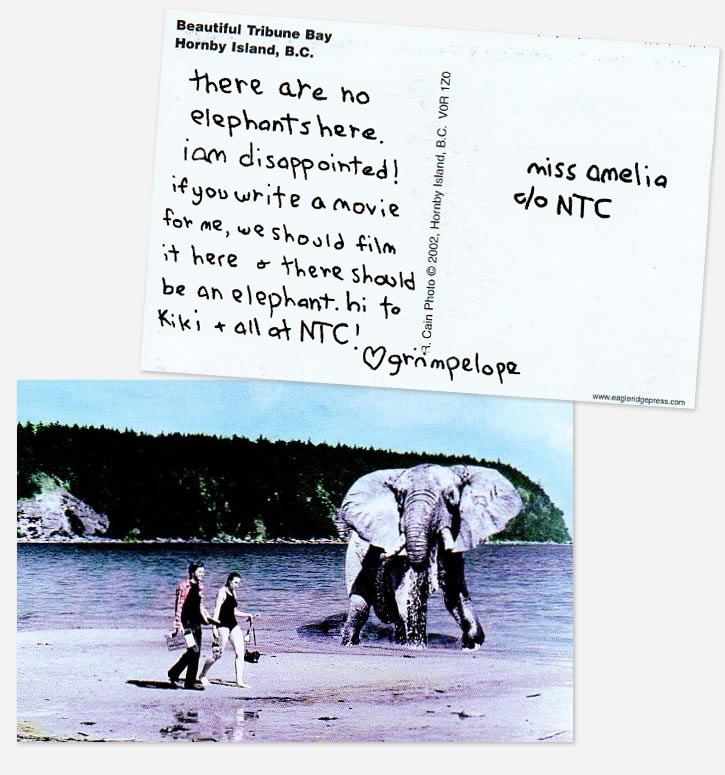 Beautiful Tribune Bay
Hornby Island, B.C.
there are no
elephants here.
i am disappointed!
if you write a movie
for me, we should film
it here & there should
be an elephant. hi to
Kiki + all at NTC!
♡grimpelope
R. Cain Photo © 2002, Hornby Island, B.C. V0R 1Z0
miss amelia
c/o NTC
www.eagleridgepress.com